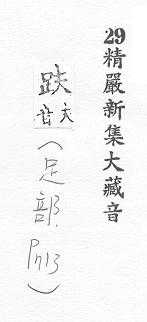 29精嚴新集大藏音
趺 音夫（足部.）